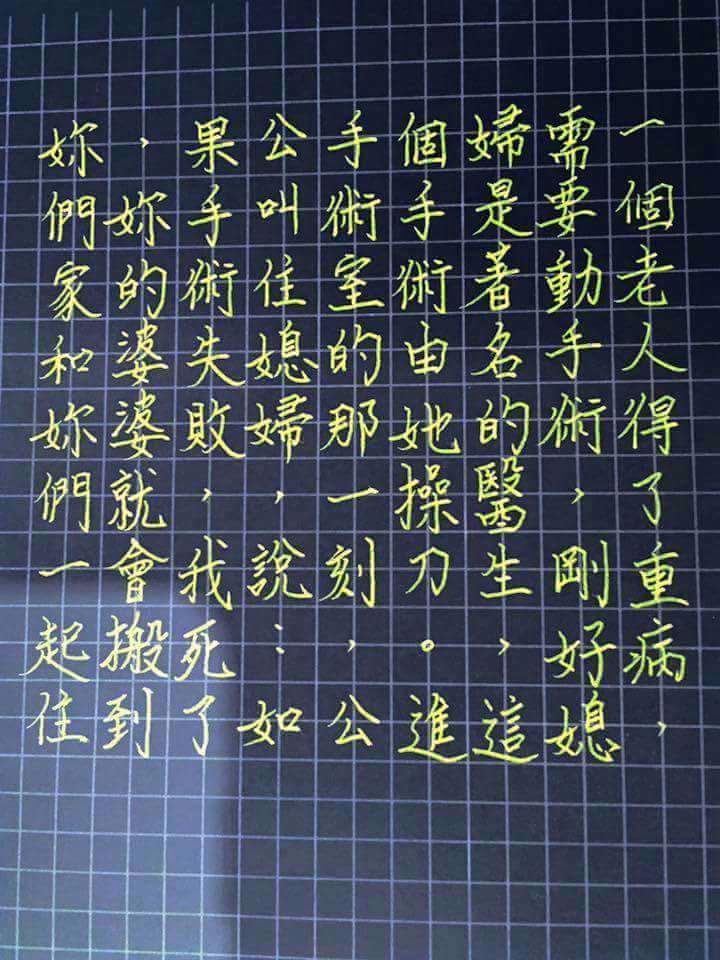 一個老人得了重病，
需要動手術，剛好媳
婦是著名的醫生，這
個手術由她操刀。進
手術室的那一刻，公
公叫住媳婦，說：如
果手術失敗，我死了
，妳的婆婆就會搬到
妳們家和妳們一起住